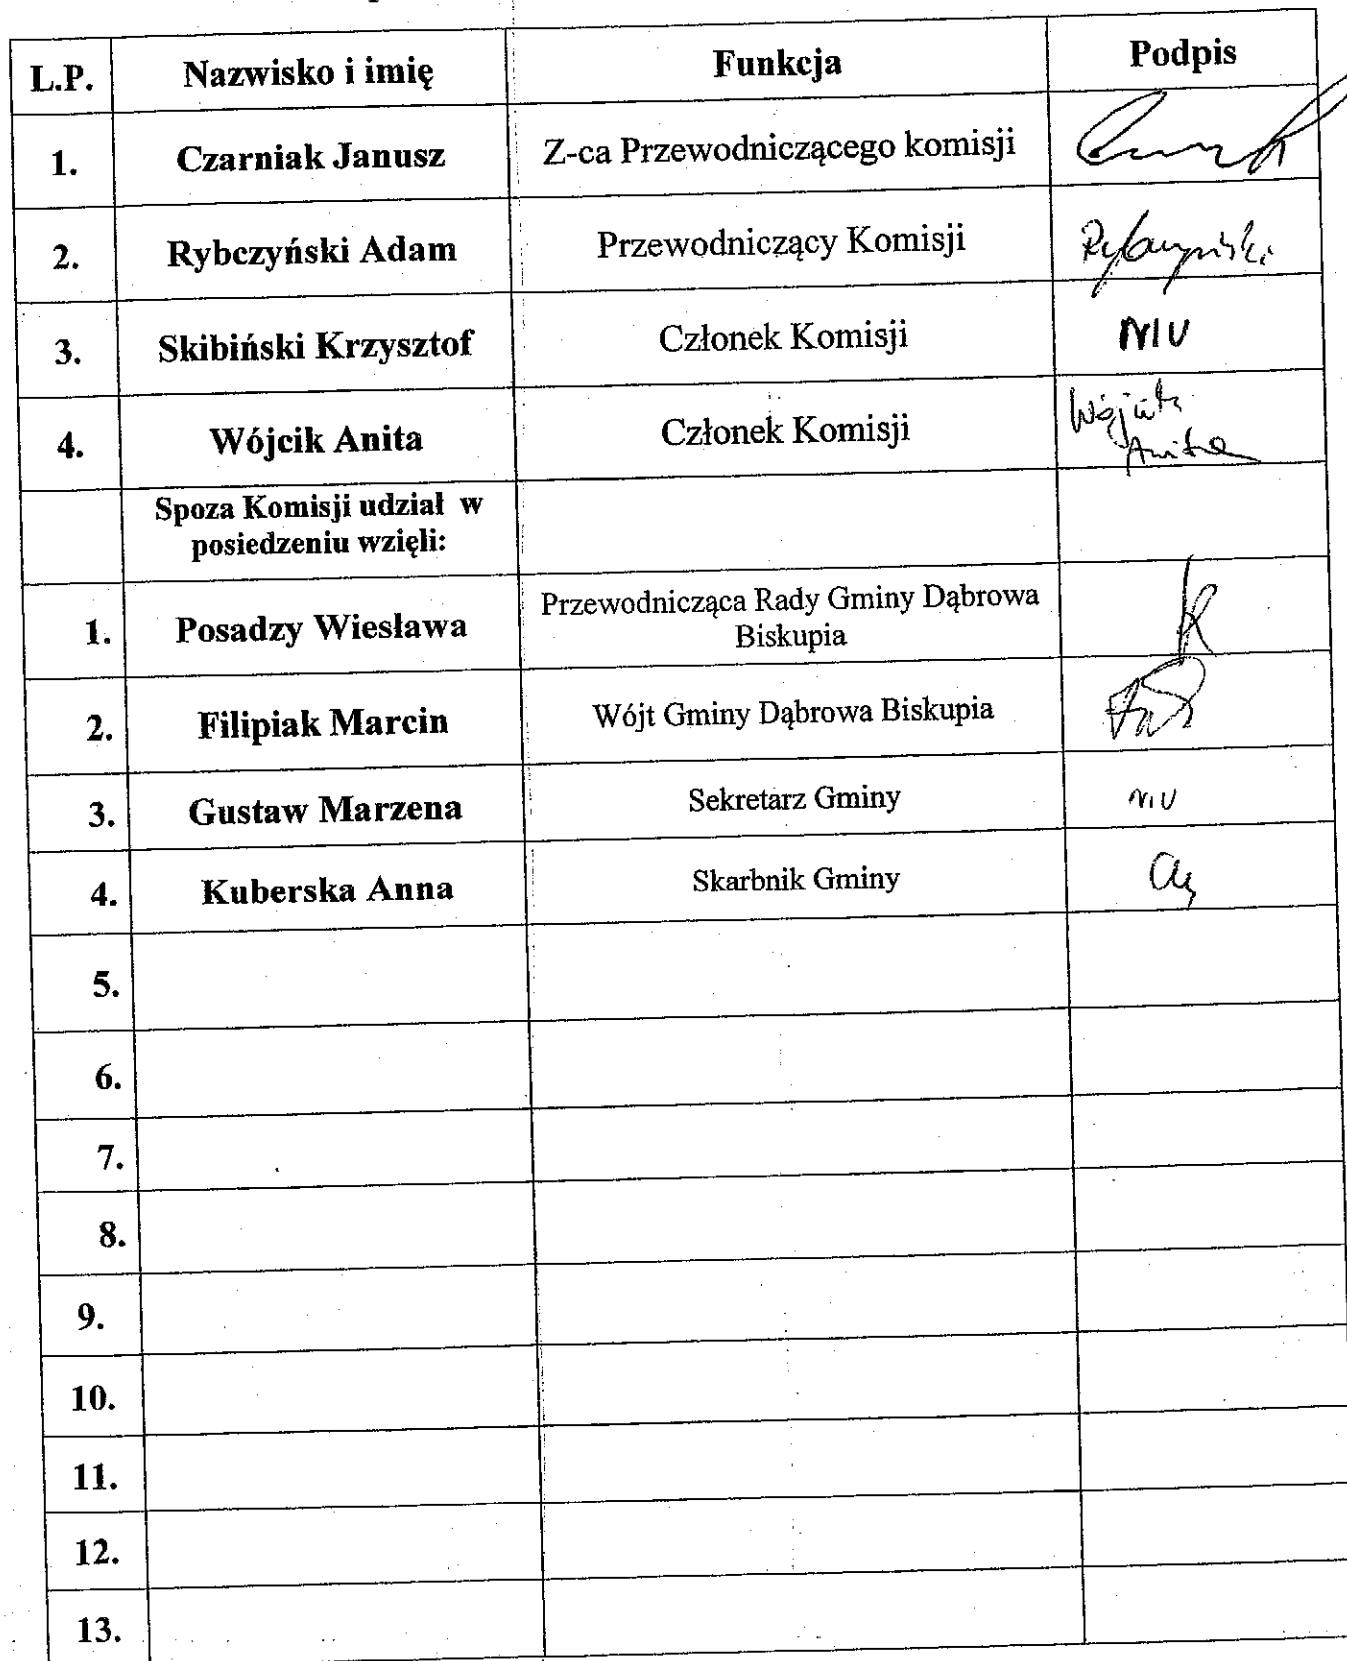 L.P. Nazwisko i imię Funkcja Podpis
1. Czarniak Janusz Z-ca Przewodniczącego komisji
2. Rybczyński Adam Przewodniczący Komisji Rybczyński
3. Skibiński Krzysztof Członek Komisji NIU
4. Wójcik Anita Członek Komisji Wójcik
Anita
Spoza Komisji udział w
posiedzeniu wzięli:
1. Posadzy Wiesława Przewodnicząca Rady Gminy Dąbrowa
Biskupia
2. Filipiak Marcin Wójt Gminy Dąbrowa Biskupia
3. Gustaw Marzena Sekretarz Gminy NIU
4. Kuberska Anna Skarbnik Gminy
5.
6.
7.
8.
9.
10.
11.
12.
13.